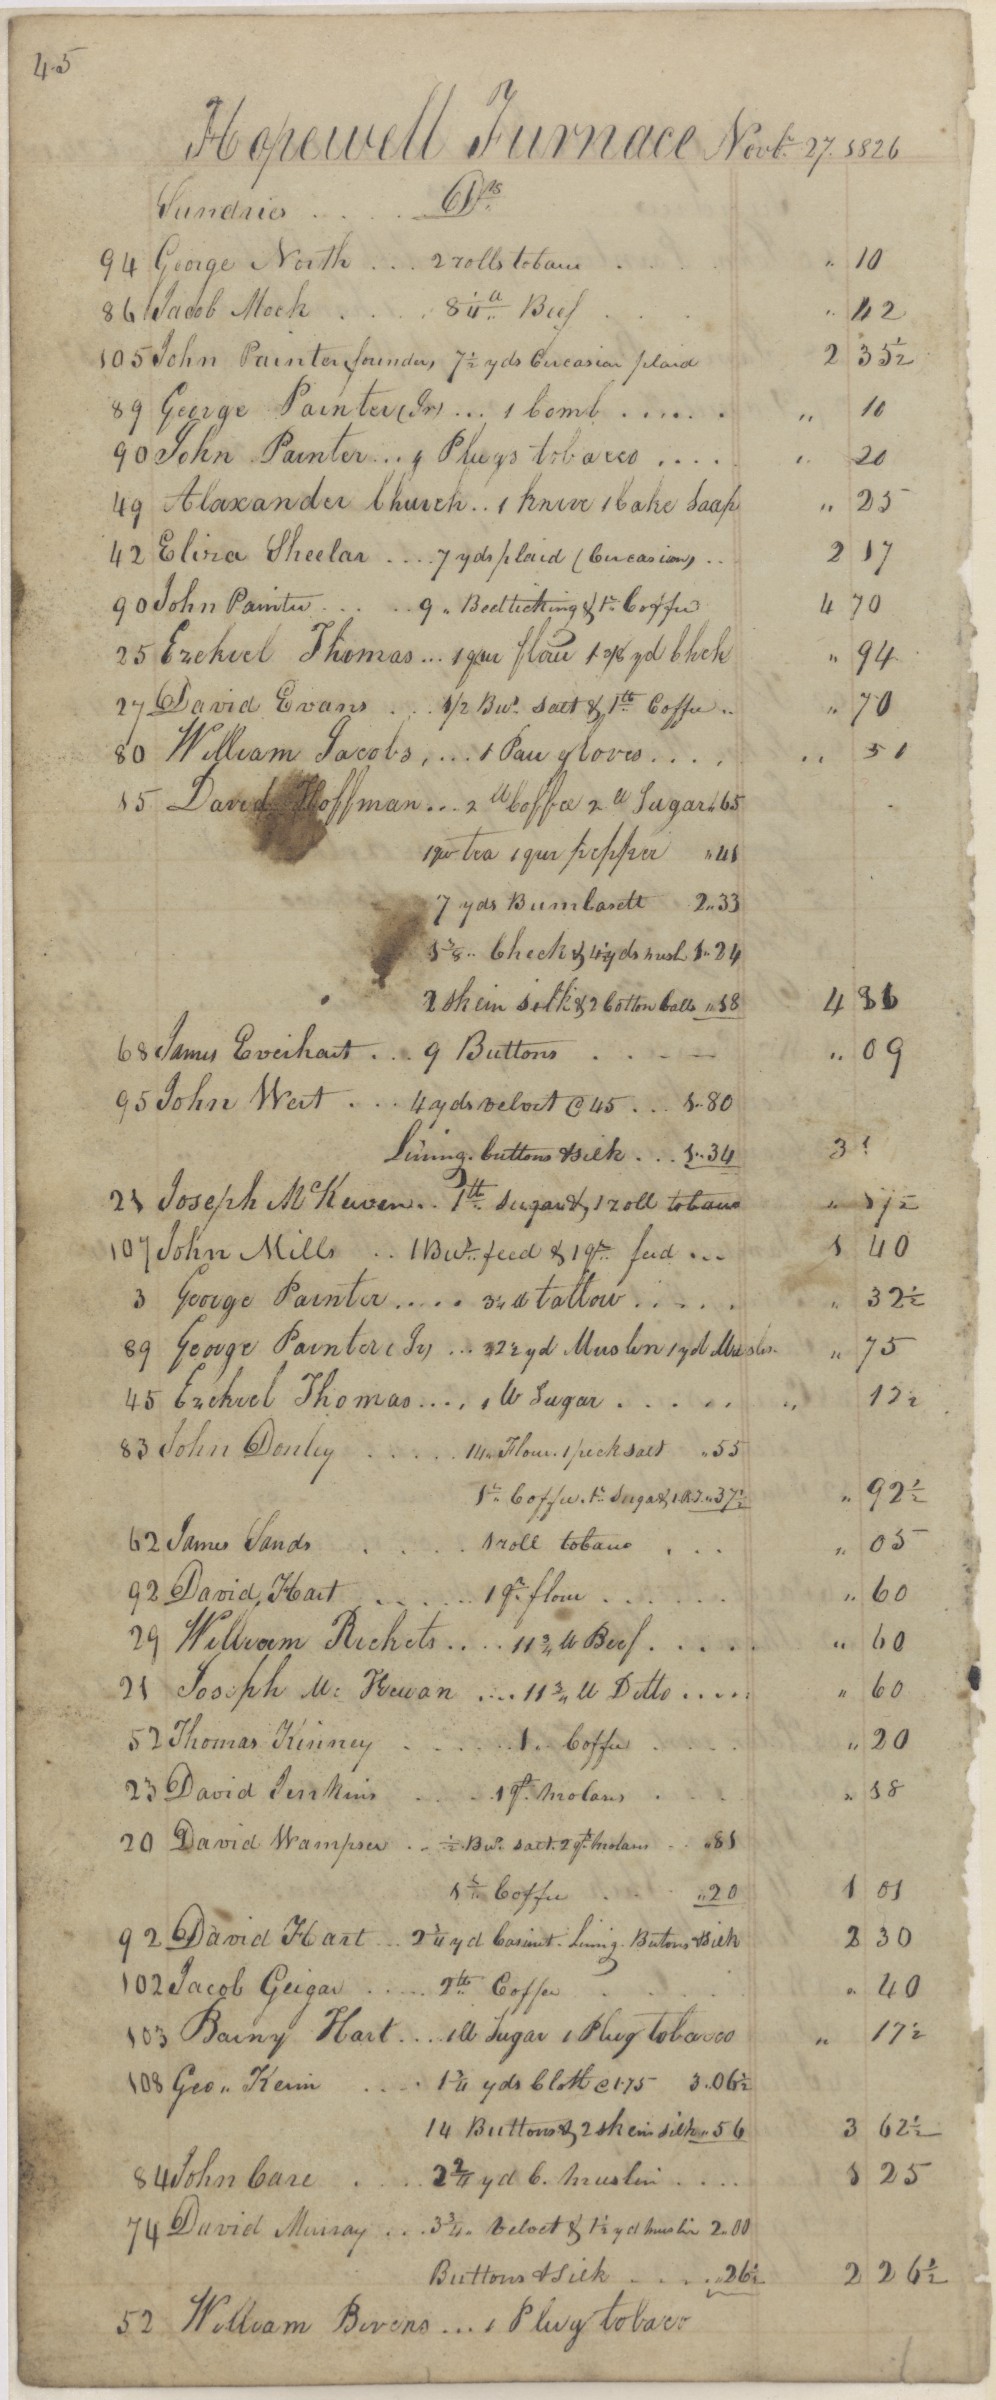 45
Hopewell Furnace Novbr. 27. 1826
Sundries .... Drs
94 George North ... 2 rolls tobacco .... " 10
86 Jacob Mock .... 8 1/4 lb Beef ... " 42
105 John Painter, founder, 7 1/2 yds Circasian plaid 2 35 1/2
89 George Painter (Jr) ... 1 Comb ...... " 10
90 John Painter ... 4 Plugs tobacco .... " 20
49 Alaxander Church .. 1 knive 1 Cake Soap " 25
42 Eliza Sheelar .... 7 yds plaid (Circasian) .. 2 17
90 John Painter .... 9 " Bedticking & 1 lb Coffee 4 70
25 Ezekiel Thomas ... 1 qur flour 1 3/8 yd Chek " 94
27 David Evans ... 1/2 Bus. Salt & 1 lb Coffee .. " 70
80 William Jacobs, ... 1 Pair gloves .... " 51
15 David Hoffman ... 2 lb Coffee 2 lb Sugar " 65
1 qur tea 1 qur pepper " 41
7 yds Bumbasett 2 " 33
1 3/8 " Check & 4 1/2 yds mush 1 " 24
2 skein silk & 2 Cotton balls " 18 4 81
68 James Everhart ... 9 Buttons .... " 09
95 John West ... 4 yds velvet @ 45 ... 1 " 80
Lining. buttons & silk ... 1 " 34 3
21 Joseph McKewen .. 1 lb Sugar & 1 roll tobacco " 17 1/2
107 John Mills .. 1 Bus. feed & 1 qr feed ... 1 40
3 George Painter ..... 3 1/4 lb tallow ..... " 32 1/2
89 George Painter (Jr) ... 2 1/2 yd Muslen 1 yd Muslen " 75
45 Ezekiel Thomas .... 1 lb Sugar ..... " 12 1/2
83 John Donley ..... 14 " Flour. 1 peck salt " 55
1 lb Coffee. 1 lb Sugar & " 37 1/2 " 92 1/2
62 James Sands .... 1 roll tobacco ... " 05
92 David Hart ...... 1 qr flour ...... " 60
29 William Rickets .... 11 3/4 lb Beef ..... " 60
21 Joseph Mc Kewan .... 11 3/4 lb Ditto ..... " 60
52 Thomas Kinney ..... 1 " Coffee .... " 20
23 David Jenkins ... 1 qt. Molases .... " 18
20 David Wampser .. 1/2 Bus. salt. 2 qt Molases .. " 81
1 lb Coffee ... " 20 1 01
92 David Hart ... 2 1/4 yd Casinet. Lining. Butons & Silk 2 30
102 Jacob Geigar ..... 2 lb Coffee .... " 40
103 Barny Hart .... 1 lb Sugar 1 Plug tobacco " 17 1/2
108 Geo " Kerin .... 1 3/4 yds Cloth @ 1.75 3 " 06 1/2
14 Buttons & 2 skein silk " 56 3 62 1/2
84 John Care .... 2 2/4 yd C. muslin .... 1 25
74 David Murray ... 3 3/4 " velvet & 1 1/2 yd muslin 2 " 00
Buttons & Silk ..... " 26 1/2 2 26 1/2
52 William Bivens ... 1 Plug tobaco